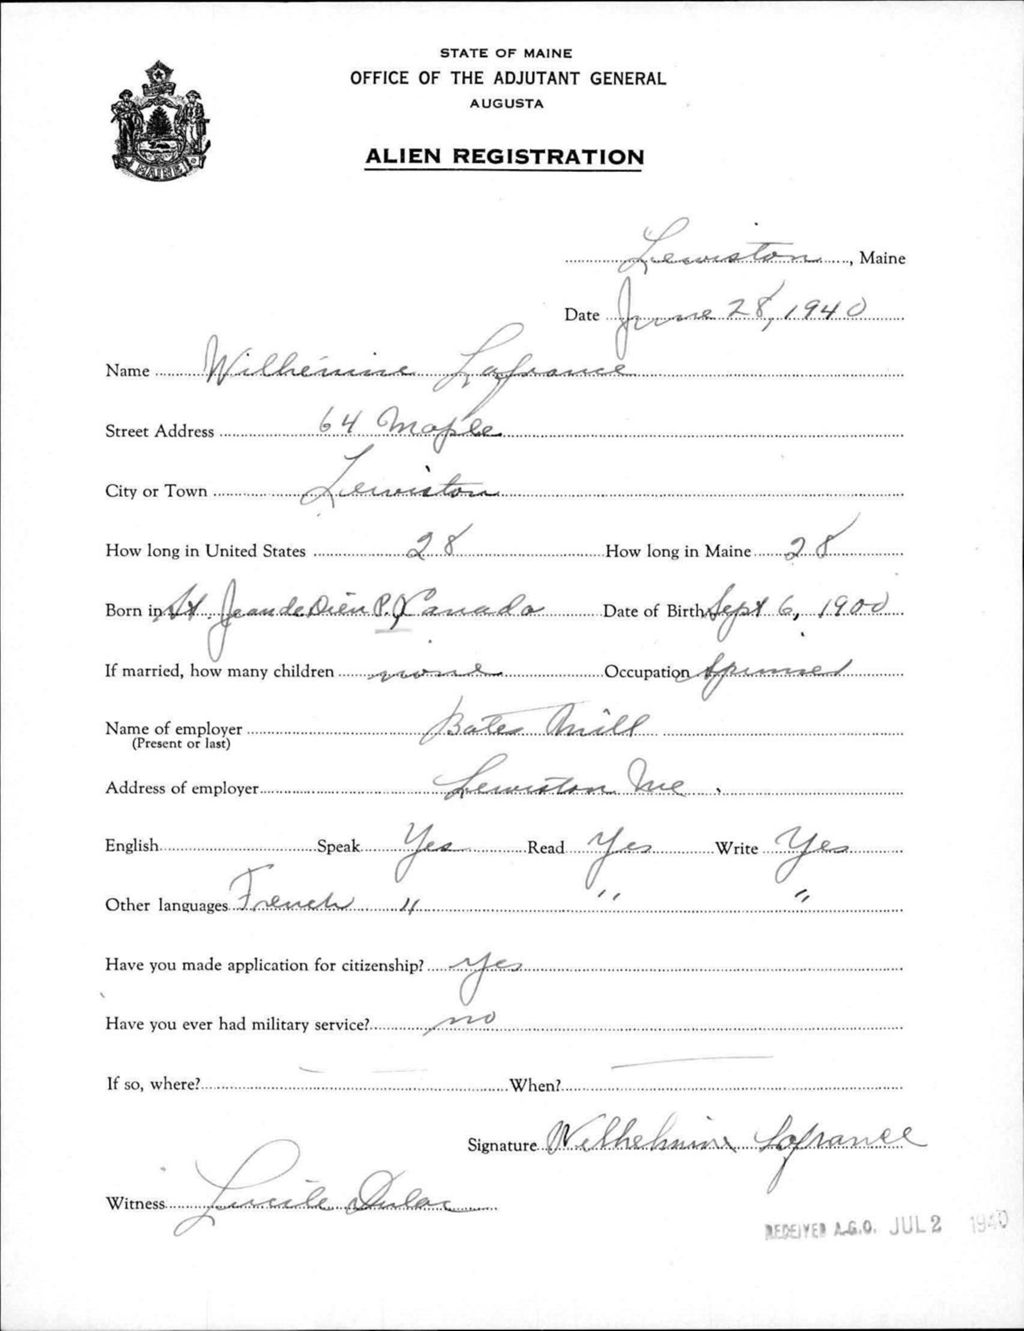 STATE OF MAINE
OFFICE OF THE ADJUTANT GENERAL
AUGUSTA
ALIEN REGISTRATION
MAINE
Lewiston, Maine
Date June 28, 1940
Name Wilhémine Lafrance
Street Address 64 Maple
City or Town Lewiston
How long in United States 28 How long in Maine 28
Born in St. Jean de Dieu P.Q Canada Date of Birth Sept 6, 1900
If married, how many children none Occupation Spinner
Name of employer Bates Mill
(Present or last)
Address of employer Lewiston Me.
English Speak Yes Read Yes Write Yes
Other languages French " " "
Have you made application for citizenship? yes
Have you ever had military service? no
If so, where? — When? —
Signature Wilhelmine Lafrance
Witness Lucile Dulac
RECEIVED A.G.O. JUL 2 1940